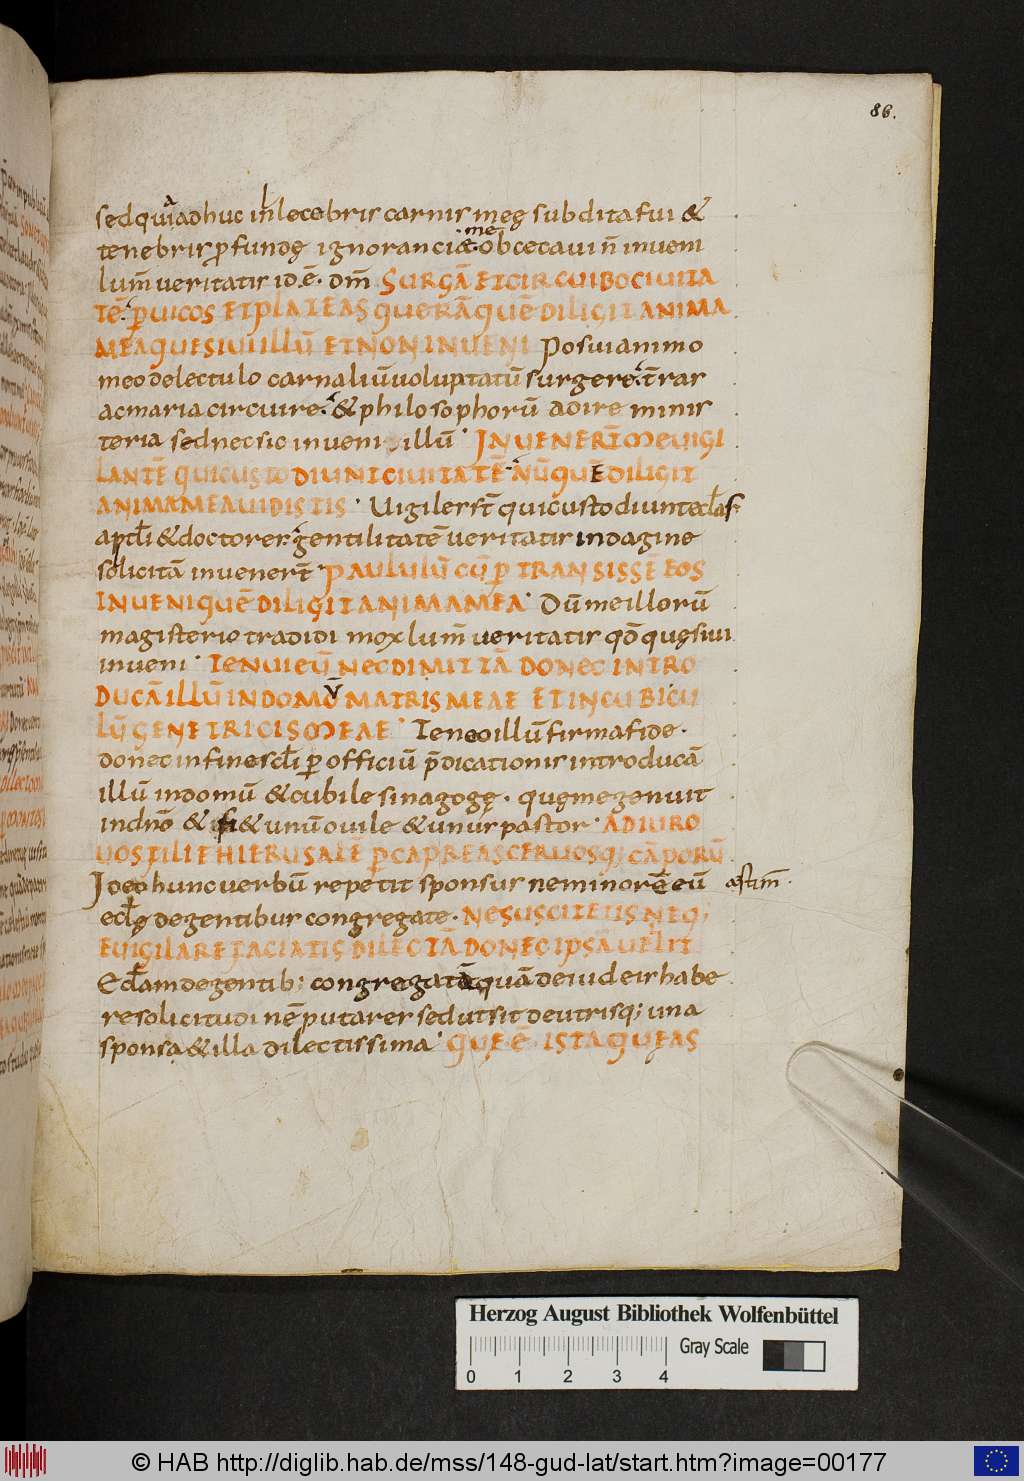 86.
sed quia adhuc inlecebris carnis meę subdita fui &
tenebris ꝓfundę ignoranciæ me obcecaui n̄ inueni
lum̄ ueritatis id ē. dm̄ SURGĀ ET CIRCUIBO CIUITA
TĒ. ꝑ UICOS ET PLATEAS QUERĀ QUĒ DILIGIT ANIMA
MEA QUESIUI ILLŪ ET NON INUENI Posui animo
meo delectulo carnaliū uoluptatū surgere. t̄ras
ac maria circuire. & philosophorū adire minis
teria sed nec sic inueni illū. INUENER̄T ME UIGI
LANTĒ QUI CUSTODIUNT CIUITATĒ. NŪ QUĒ DILIGIT
ANIMA MEA UIDISTIS. Uigiles st̄ qui custodiunt ecl̄as.
aptl̄i & doctores. gentilitatē ueritatis indagine
solicitā inuenert̄. PAULULŪ CŪ ꝑTRANSISSĒ EOS
INUENI QUĒ DILIGIT ANIMA MEA. Dū me illorū
magisterio tradidi mox lum̄ ueritatis qđ quęsiui
inueni. TENUI EŪ NEC DIMITTĀ DONEC INTRO
DUCĀ ILLŪ IN DOMŪ MATRIS MEAE ET IN CUBICU
LŪ GENETRICIS MEAE. Teneo illū firma fide.
donec in fine scl̄i ꝑ officiū p̄dicationis introducā
illū in domū & cubile sinagogę. quę me genuit
in dn̄o & si & unū ouile & unus pastor. ADIURO
UOS FILIE HIERUSALĒ ꝑ CAPREAS CERUOSQ; CĀPORŪ
Ideo hunc uerbū repetit sponsus ne minorē eū æstim̄.
ecl̄ę de gentibus congregate. NE SUSCITETIS NEQ;
EUIGILARE FACIATIS DILECTĀ DONEC IPSA UELIT
Ecl̄am de gentib; congregatā quā de iudeis habe
re solicitudinē putares sed ut sit de utrisq; una
sponsa & illa dilectissima. QUE Ē ISTA QUE AS
Herzog August Bibliothek Wolfenbüttel
Gray Scale
0 1 2 3 4
© HAB http://diglib.hab.de/mss/148-gud-lat/start.htm?image=00177